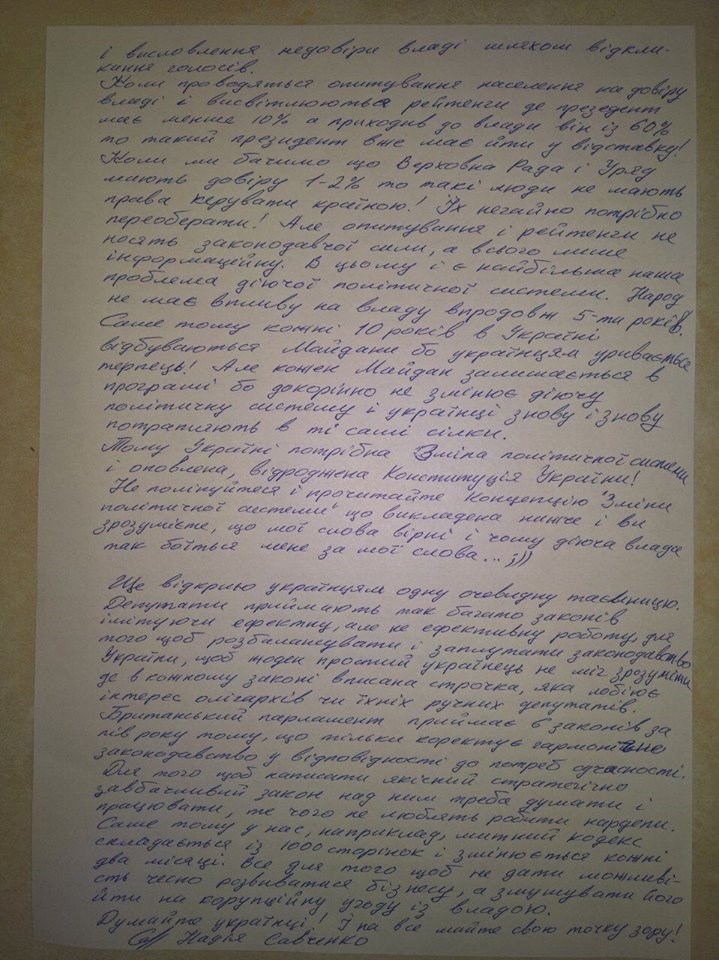 і висловлення недовіри владі шляхом відкли-
кання голосів.
Коли проводяться опитування населення на довіру
владі і висвітлюються рейтенги де презедент
має менше 10% а приходив до влади він із 60%
то такий президент вже має йти у відставку!
Коли ми бачимо що Верховна Рада і Уряд
мають довіру 1-2% то такі люди не мають
права керувати країною! Їх негайно потрібно
переоберати! Але опитування і рейтенги не
носять законодавчої сили, а всього лише
інформаційну. В цьому і є найбільша наша
проблема діючої політичної системи. Народ
не має впливу на владу впродовж 5-ти років.
Саме тому кожні 10 років в Україні
відбуваються Майдани бо українцям уривається
терпець! Але кожен Майдан залишається в
програші бо докорінно не змінює діючу
політичну систему і українці знову і знову
потрапляють в ті самі сілки.
Тому Україні потрібна Зміна політичної системи
і оновлена, відроджена Конституція України!
Не полінуйтеся і прочитайте Концепцію "Зміни
політичної системи" що викладена нижче і ви
зрозумієте, що мої слова вірні і чому діюча влада
так боїться мене за мої слова... ;))
Ще відкрию українцям одну очевидну таємницю.
Депутати приймають так багато законів
імітуючи ефектну, але не ефективну роботу, для
того щоб розбалансувати і заплутати законодавство
України, щоб жоден простий українець не міг зрозуміти
де в кожному законі вписана строчка, яка лобіює
інтерес олігархів чи їхніх ручних депутатів.
Британський парламент приймає 6 законів за
пів року тому, що тільки коректує гармонічно
законодавство у відповідності до потреб сучасності.
Для того щоб написати якісний стратегічно
завбачливий закон над ним треба думати і
працювати, те чого не люблять робити нардепи.
Саме тому у нас, наприклад, митний кодекс
складається із 1000 сторінок і змінюється кожні
два місяці. Все для того щоб не дати можливі-
сть чесно розвиватися бізнесу, а змушувати його
йти на корупційну угоду із владою.
Думайте українці! І на все майте свою точку зору!
Надія Савченко